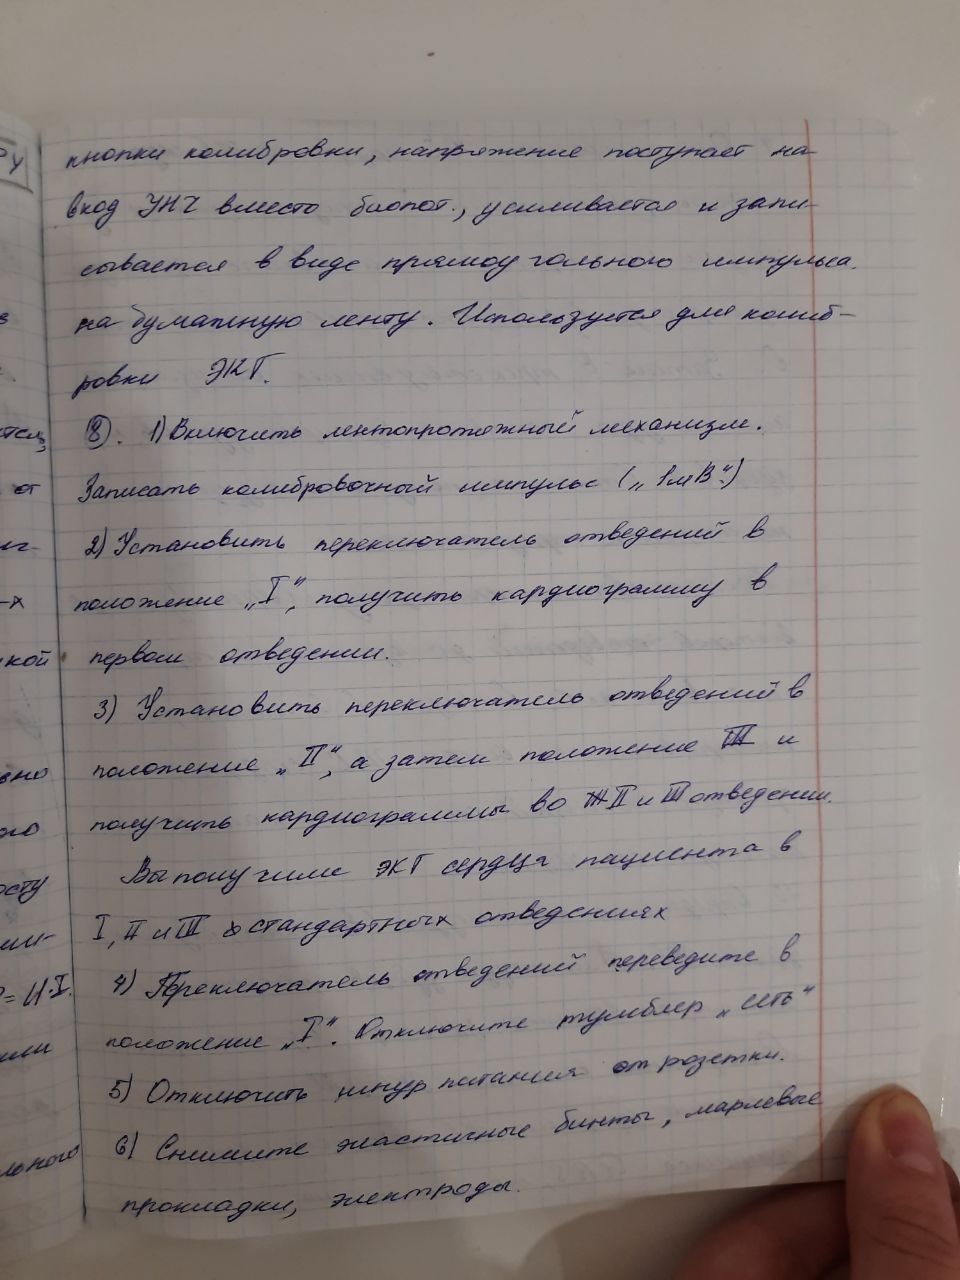 кнопки калибровки, напряжение поступает на
вход УНЧ вместо биопот., усиливается и запи-
сывается в виде прямоугольного импульса
на бумажную ленту. Используется для калиб-
ровки ЭКГ.
8. 1) Включить лентопротяжный механизм.
Записать калибровочный импульс („1мВ“)
2) Установить переключатель отведений в
положение „I“, получить кардиограмму в
первом отведении.
3) Установить переключатель отведений в
положение „II“, а затем положение III и
получить кардиограммы во II и III отведении.
Вы получили ЭКГ сердца пациента в
I, II и III стандартных отведениях
4) Переключатель отведений переведите в
положение „I“. Отключите тумблер „сеть“
5) Отключить шнур питания от розетки.
6) Снимите эластичные бинты, марлевые
прокладки, электроды.
от
-х
кой
вно
ого
осту
ми-
= U·I.
или
льного